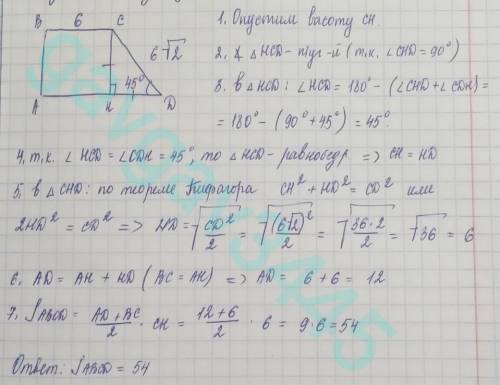 B 6 C
6√2
45°
A H D
1. Опустим высоту CH.
2. ∆ HCD - п/уг-й (т.к. ∠CHD = 90°)
3. В ∆HCD: ∠HCD = 180° - (∠CHD + ∠CDH) =
= 180° - (90° + 45°) = 45°.
4. т.к. ∠HCD = ∠CDH = 45°, то ∆HCD - равнобедр => CH = HD
5. в ∆CHD: по теореме Пифагора CH² + HD² = CD² или
2HD² = CD² => HD = √(CD²/2) = √((6√2)²/2) = √(36·2/2) = √36 = 6
6. AD = AH + HD (BC = AH) => AD = 6 + 6 = 12
7. SABCD = (AD + BC)/2 · CH = (12 + 6)/2 · 6 = 9·6 = 54
Ответ: SABCD = 54